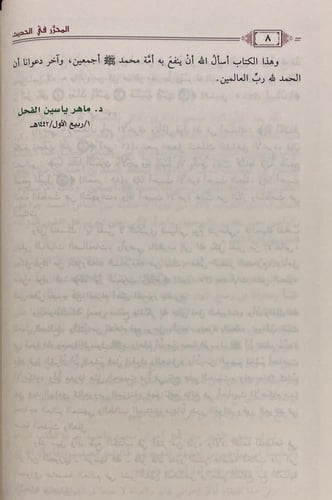 ٨
المحرَّر في الحديث
وهذا الكتاب أسألُ الله أنْ ينفعَ به أمَّة محمد ﷺ أجمعين، وآخر دعوانا أن
الحمد لله ربِّ العالمين.
د. ماهر ياسين الفحل
١/ربيع الأول/١٤٤٢هـ